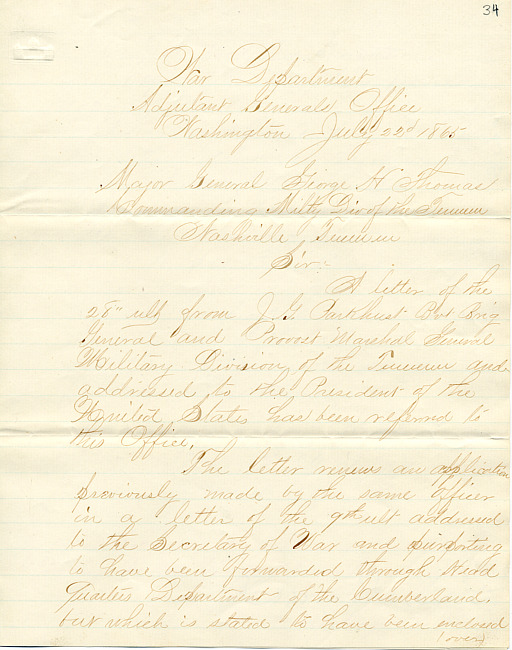 34
War Department
Adjutant Generals Office
Washington July 22d 1865
Major General George H Thomas
Commanding Milty Div of the Tennessee
Nashville, Tennessee
Sir:
A letter of the
28" ult from J G. Parkhurst Bvt Brig
General and Provost Marshal General
Military Division, of the Tennessee and
addressed to the President of the
United States has been referred to
this Office.
The letter renews an application
previously made by the same officer
in a letter of the 9th ult addressed
to the Secretary of War and purporting
to have been forwarded through Head
Quarters Department of the Cumberland.
but which is stated to have been enclosed
(over)